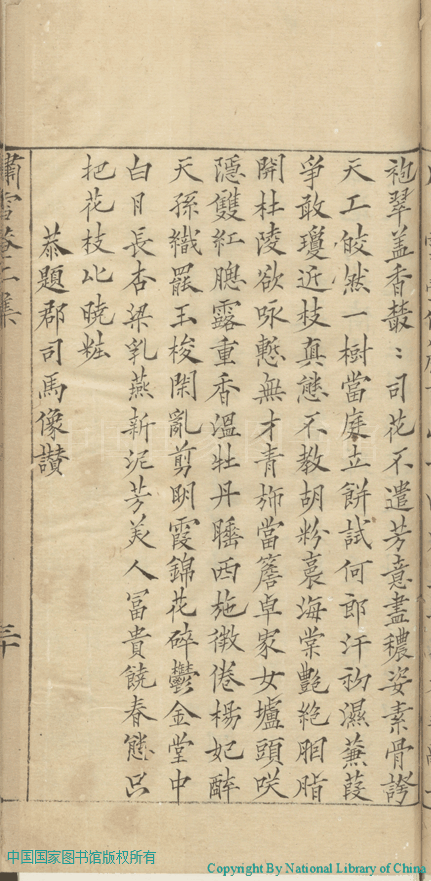 袍翠盖香叢〻司花不遣芳意盡穠姿素骨誇
天工皎然一樹當庭立餅試何郎汗初濕蒹葭
爭敢瓊近枝真態不教胡粉裛海棠艷絶胭脂
開杜陵欲咏慙無才青旆當簷卓家女壚頭咲
隱雙紅臆露重香温牡丹睡西施微倦楊妃醉
天孫織罷玉梭閑亂剪明霞錦花碎鬱金堂中
白日長杏梁乳燕新泥芳美人冨貴饒春態只
把花枝比曉粧
恭題郡司馬像讃
嘯雪菴二集
三十
中国国家图书馆版权所有
Copyright By National Library of China